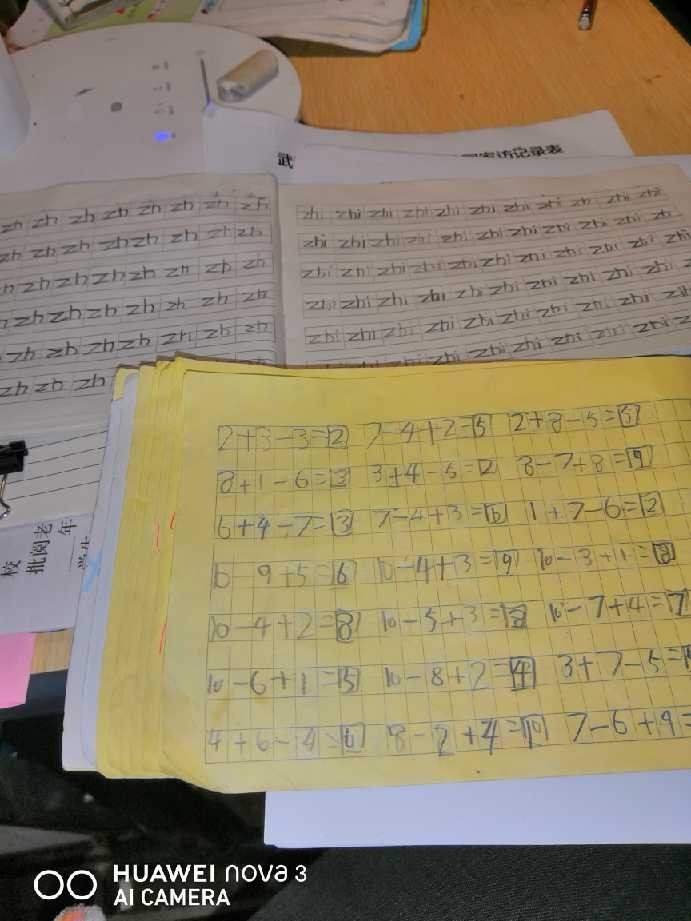 武
家访记录表
zh zh zh zh zh zh zh zh
zh zh zh zh zh zh zh
zh zh zh zh zh zh zh
zh zh zh zh zh zh zh
zh zh zh zh zh zh zh
zh zh zh
zhi zhi zhi zhi zhi zhi zhi zhi zhi zhi zhi
zhi zhi zhi zhi zhi zhi zhi zhi zhi zhi zhi
zhi zhi zhi zhi zhi zhi zhi zhi zhi zhi zhi
zhi zhi zhi zhi zhi zhi zhi zhi zhi zhi zhi
zhi zhi zhi zhi zhi zhi zhi zhi zhi zhi
2+3-3=2 7-4+2=5 2+8-5=5
8+1-6=3 3+4-5=2 8-7+8=9
6+4-7=3 7-4+3=6 1+7-6=2
10 9+5=6 10-4+3=9 10-3+1=8
10-4+2=8 10-5+3=8 10-7+4=7
10-6+1=5 10-8+2=4 3+7-5=
4+6-4=6 8-2+4=10 7-6+9=
校
批阅老
年
HUAWEI nova 3
AI CAMERA